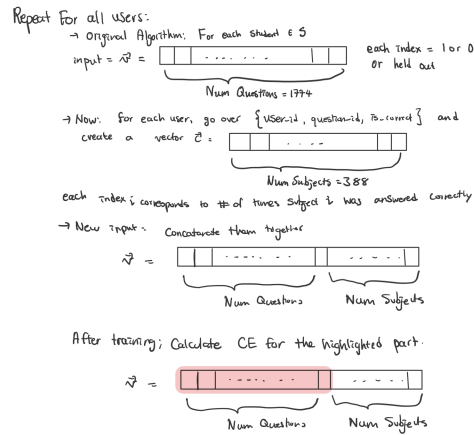 Repeat For all users:
→ Original Algorithm: For each student ∈ S
input = v⃗ =
each index = 1 or 0
or held out
Num Questions = 1774
→ Now: for each user, go over {user_id, question_id, is_correct} and
create a vector c⃗ =
Num Subjects = 388
each index i corresponds to # of times subject i was answered correctly
→ New input: Concatenate them together
v⃗ =
Num Questions Num Subjects
After training; Calculate CE for the highlighted part.
v⃗ =
Num Questions Num Subjects